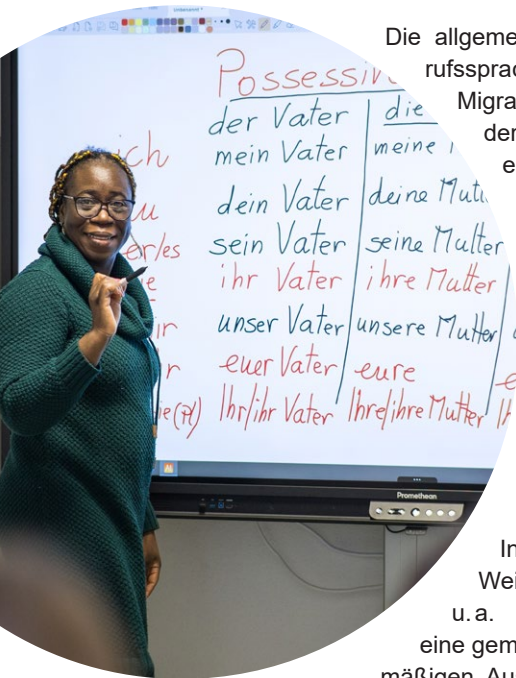 Unbenannt
Die allgeme
rufssprac
Migra
der
e
Possessiv
der Vater die
ich mein Vater meine
du dein Vater deine Mutt
er/es sein Vater seine Mutter
ihr Vater ihre Mutter
unser Vater unsere Mutter
euer Vater eure
(Pl) Ihr/ihr Vater Ihre/ihre Mutter
Promethean
In
Wei
u. a.
eine gem
mäßigen Aus